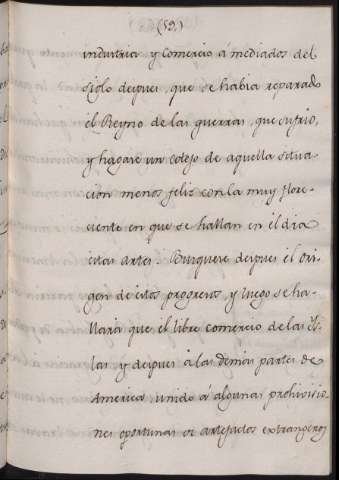 (59.)
industria y Comercio á mediados del
siglo despues, que se habia reparado
el Reyno de las guerras, que sufrio,
y hagase un cotejo de aquella situa-
cion menos feliz con la muy flore-
ciente en que se hallan en el dia
estas artes. Busquese despues el ori-
gen de estos progresos, y luego se ha-
llará que el libre comercio de las Ys-
las, y despues á las demas partes de
America, unido á algunas prohivisio-
nes oportunas de artefactos extrangeros